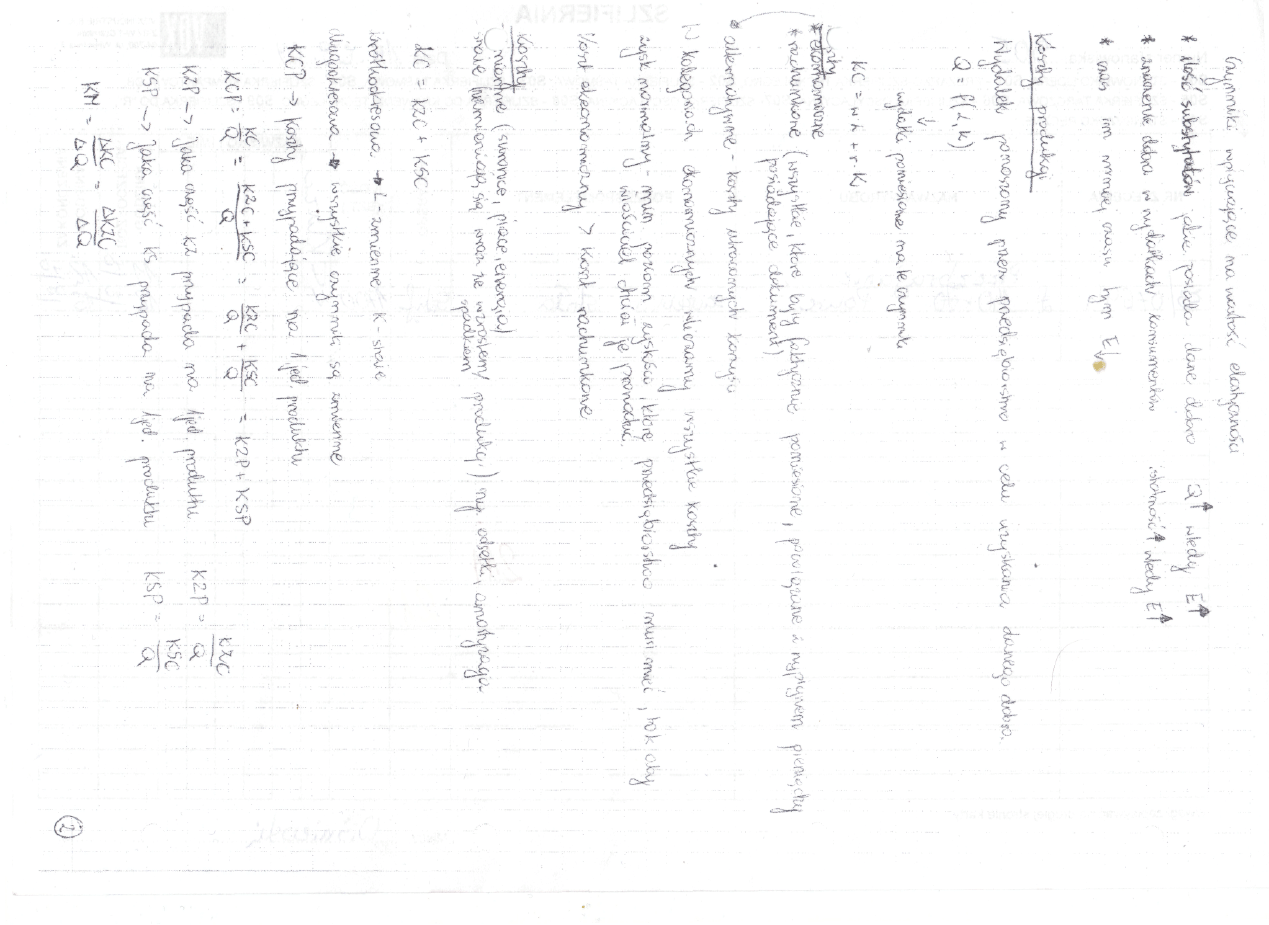 Czynniki wpływające na wartość elastyczności
* ilość substytutów jakie posiada dane dobro Q↑ wtedy E↑
* znaczenie dobra w wydatkach konsumentów istotność↑ wtedy E↑
* czas im mniej czasu tym E↓
Koszty produkcji
Wydatek ponoszony przez przedsiębiorstwo w celu uzyskania danego dobra.
Q = f(L, K)
wydatki poniesione na te czynniki
KC = w L + r · K
koszty
* ekonomiczne
* rachunkowe (wszystkie, które były faktycznie poniesione, powiązane z wypływem pieniędzy
posiadające dokument)
* alternatywne - koszty utraconych korzyści
W kategoriach ekonomicznych wliczamy wszystkie koszty
zysk normalny - min. poziom zysków, które przedsiębiorstwo musi mieć, tak aby
właściciel chciał je prowadzić.
Koszt ekonomiczny > koszt rachunkowe
Koszty
- zmienne (surowce, płace, energia)
- stałe (nie zmieniają się wraz ze wzrostem/ produkcji) np. odsetki, amortyzacja
spadkiem
KC = KZC + KSC
krótkookresowa → L - zmienne K - stałe
długookresowa → wszystkie czynniki są zmienne
KCP → koszty przypadające na 1 jed. produktu
KCP = KC/Q = KZC + KSC/Q = KZC/Q + KSC/Q = KZP + KSP
KZP → jaka część KZ przypada na 1 jed. produktu KZP = KZC/Q
KSP → jaka część KS przypada na 1 jed. produktu KSP = KSC/Q
KM = ΔKC/ΔQ = ΔKZC/ΔQ
2